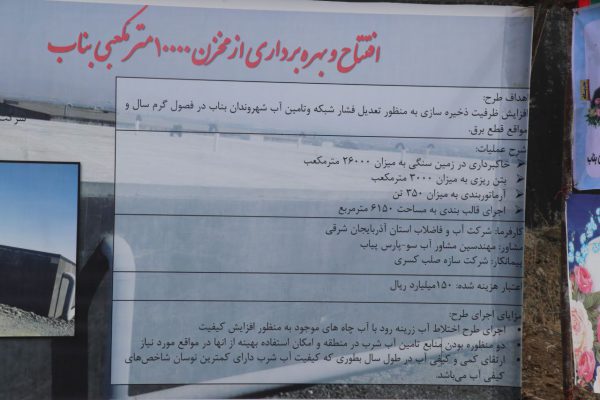 افتتاح و بهره برداری از مخزن ۱۰۰۰۰ متر مکعبی بناب
اهداف طرح:
افزایش ظرفیت ذخیره سازی به منظور تعدیل فشار شبکه وتامین آب شهروندان بناب در فصول گرم سال و
مواقع قطع برق.
شرح عملیات:
خاکبرداری در زمین سنگی به میزان ۲۶۰۰۰ مترمکعب
بتن ریزی به میزان ۳۰۰۰ مترمکعب
آرماتوربندی به میزان ۳۵۰ تن
اجرای قالب بندی به مساحت ۶۱۵۰ مترمربع
کارفرما: شرکت آب و فاضلاب استان آذربایجان شرقی
مشاور: مهندسین مشاور آب سو-پارس پیاب
پیمانکار: شرکت سازه صلب کسری
اعتبار هزینه شده: ۱۵۰میلیارد ریال
مزایای اجرای طرح:
اجرای طرح اختلاط آب زرینه رود با آب چاه های موجود به منظور افزایش کیفیت
دو منظوره بودن منابع تامین آب شرب در منطقه و امکان استفاده بهینه از انها در مواقع مورد نیاز
ارتقای کمی و کیفی آب در طول سال بطوری که کیفیت آب شرب دارای کمترین نوسان شاخص‌های
کیفی آب می‌باشد.
شرکت
بناب